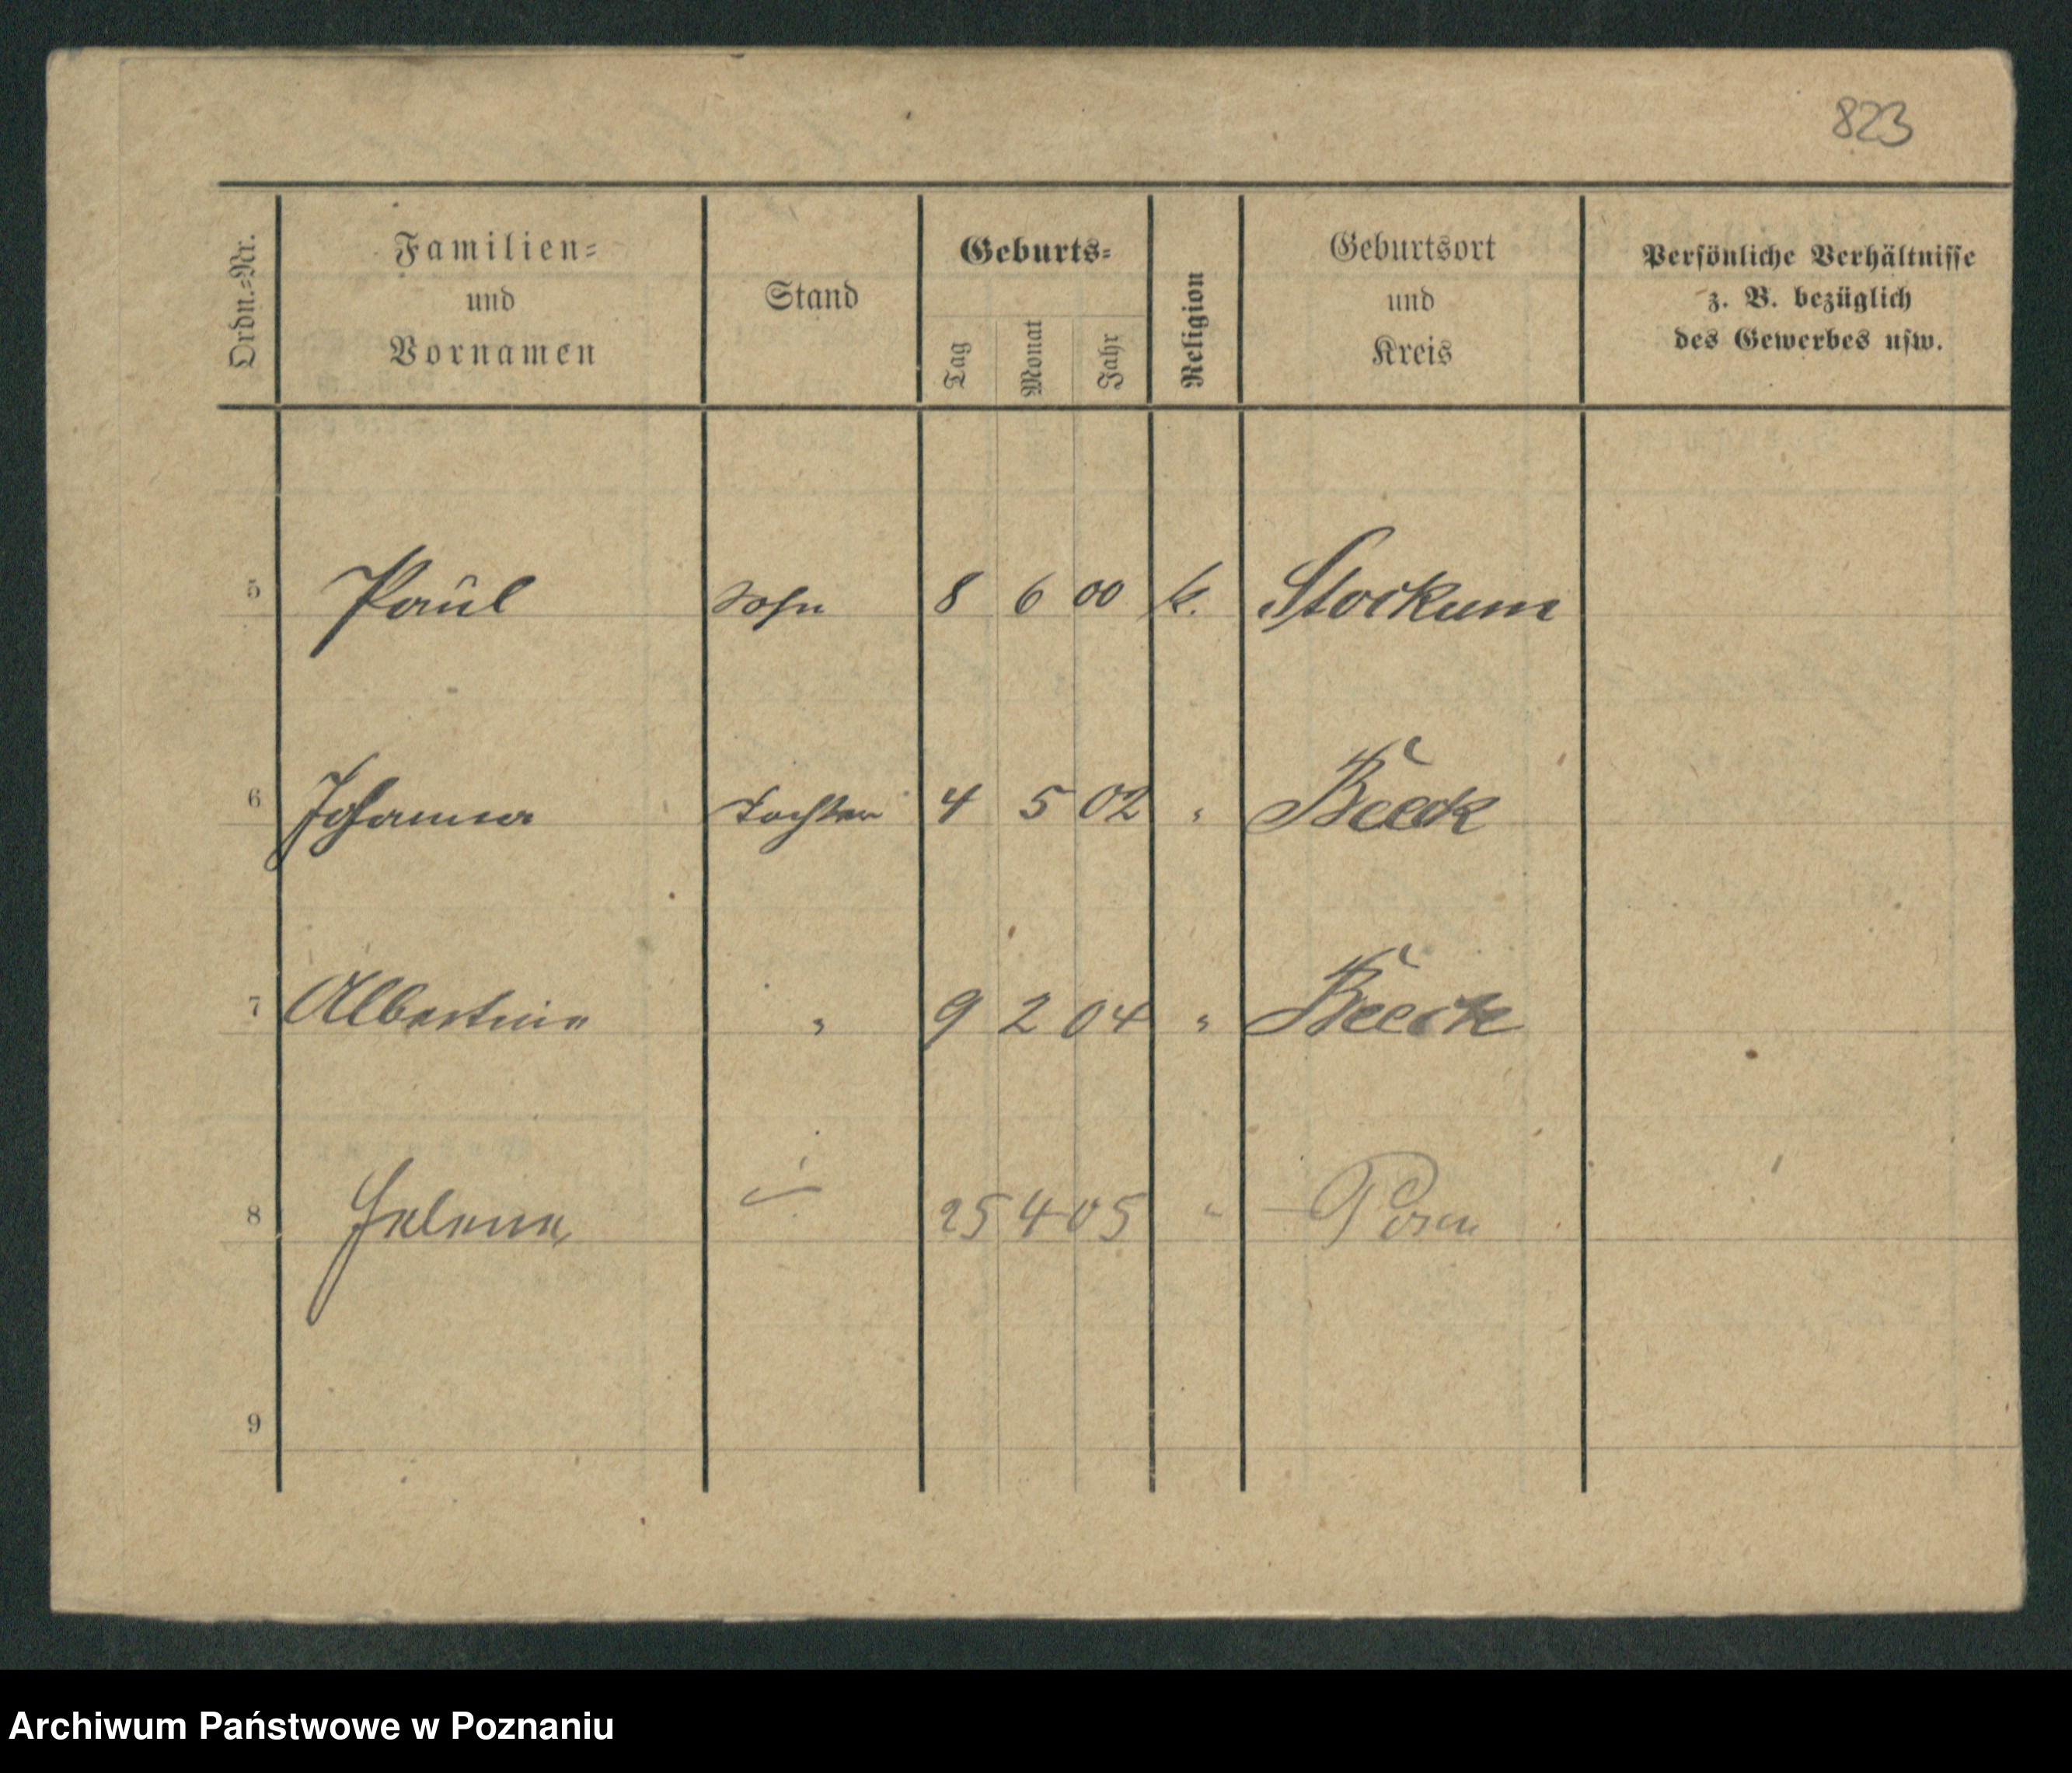 823
Ordn.-Nr. Familien- und Vornamen Stand Geburts- Tag Monat Jahr Religion Geburtsort und Kreis Persönliche Verhältnisse z. B. bezüglich des Gewerbes usw.
5 Paul Sohn 8 6 00 k. Stockum
6 Johanna Tochter 4 5 02 " Beeck
7 Albertine " 9 2 04 " Beeck
8 Helena 25 4 05 " Posen
9
Archiwum Państwowe w Poznaniu